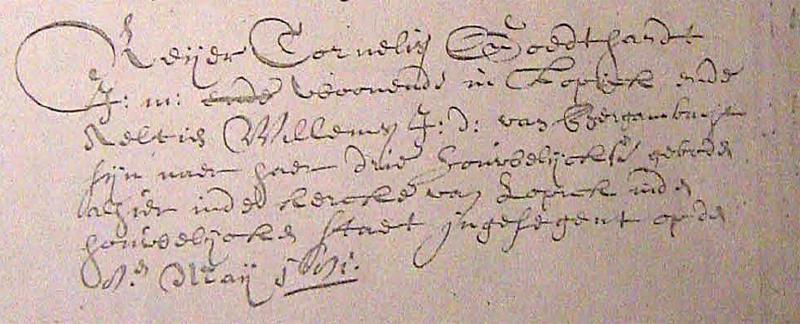 Reijer Cornelis Goedthardt
J: m: ende woonende in Lopick ende
Neltie Willems J: d: van Bergambacht
sijn naer haer drie houwelijckse geboden
alhier inde kercke van Lopick inde
houwelijcken staet ingesegent op den
Maij